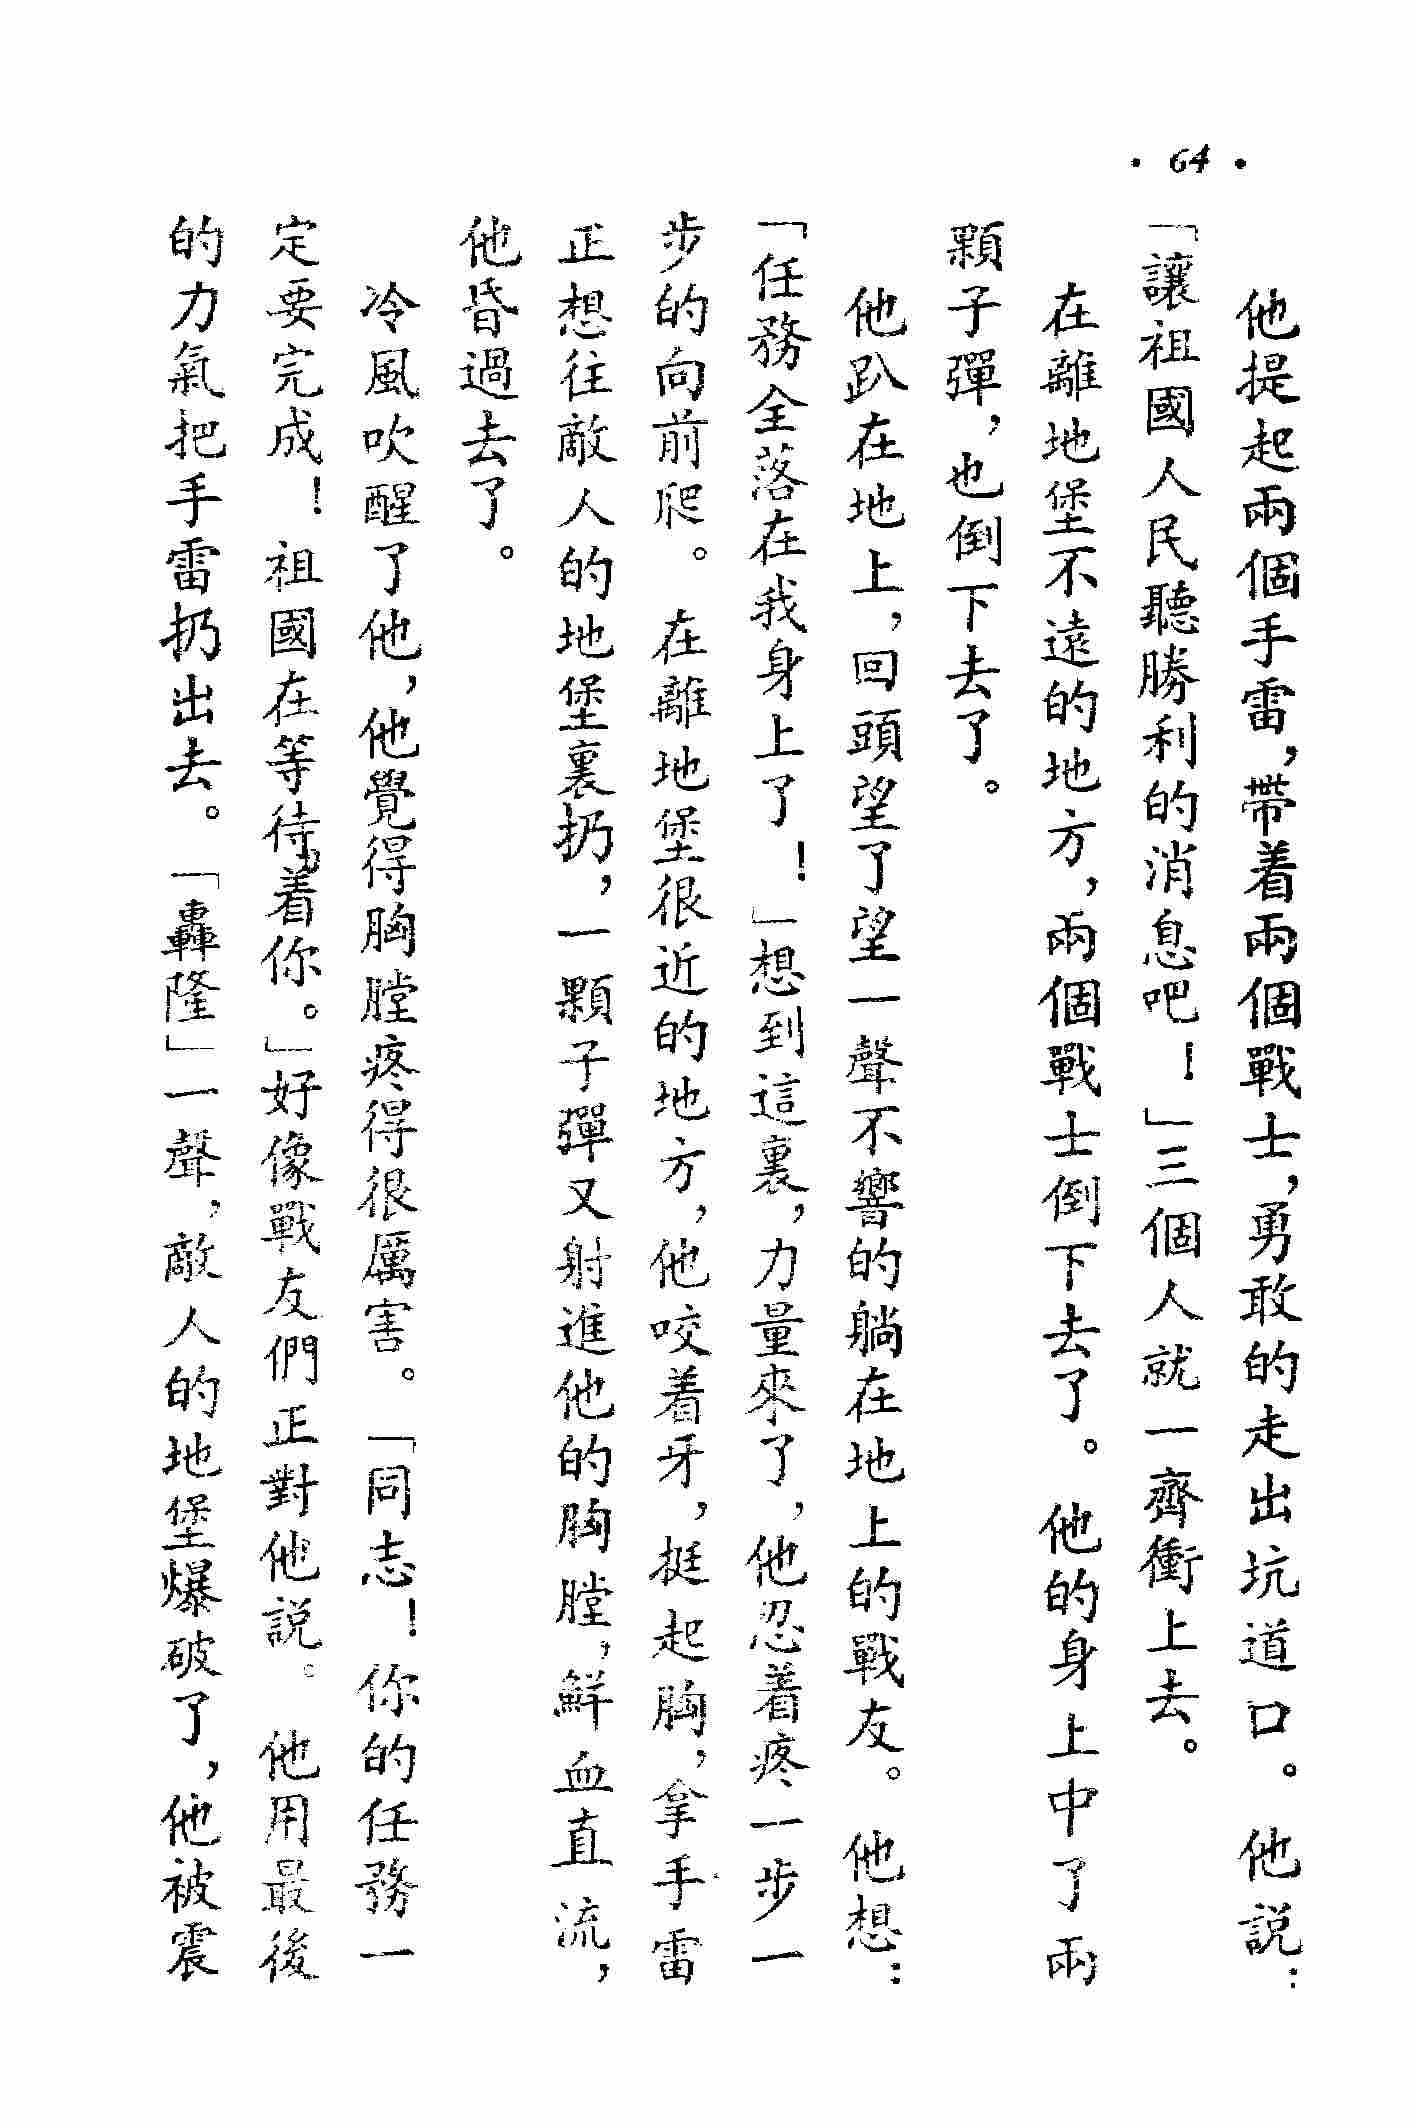 · 64 ·
他提起兩個手雷，帶着兩個戰士，勇敢的走出坑道口。他説：
「讓祖國人民聽勝利的消息吧！」三個人就一齊衝上去。
在離地堡不遠的地方，兩個戰士倒下去了。他的身上中了兩
顆子彈，也倒下去了。
他趴在地上，回頭望了望一聲不響的躺在地上的戰友。他想：
「任務全落在我身上了！」想到這裏，力量來了，他忍着疼一步一
步的向前爬。在離地堡很近的地方，他咬着牙，挺起胸，拿手雷
正想往敵人的地堡裏扔，一顆子彈又射進他的胸膛，鮮血直流，
他昏過去了。
冷風吹醒了他，他覺得胸膛疼得很厲害。「同志！你的任務一
定要完成！祖國在等待着你。」好像戰友們正對他説。他用最後
的力氣把手雷扔出去。「轟隆」一聲，敵人的地堡爆破了，他被震